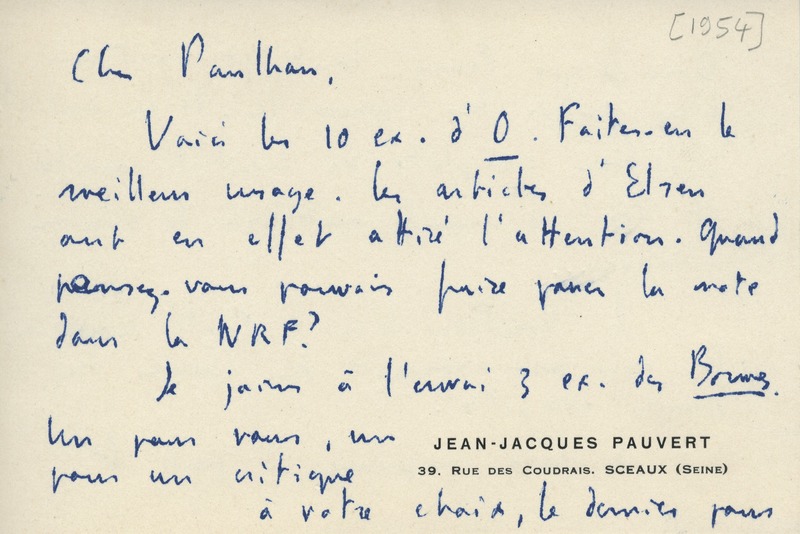 [1954]
Cher Paulhan,
Voici les 10 ex. d'O. Faites-en le
meilleur usage. Les articles d'Elsen
ont en effet attiré l'attention. Quand
pensez-vous pouvoir faire passer la note
dans la NRF?
Je joins à l'envoi 3 ex. des Bornes.
Un pour vous, un
JEAN-JACQUES PAUVERT
pour un critique
39. RUE DES COUDRAIS. SCEAUX (SEINE)
à votre choix, le dernier pour